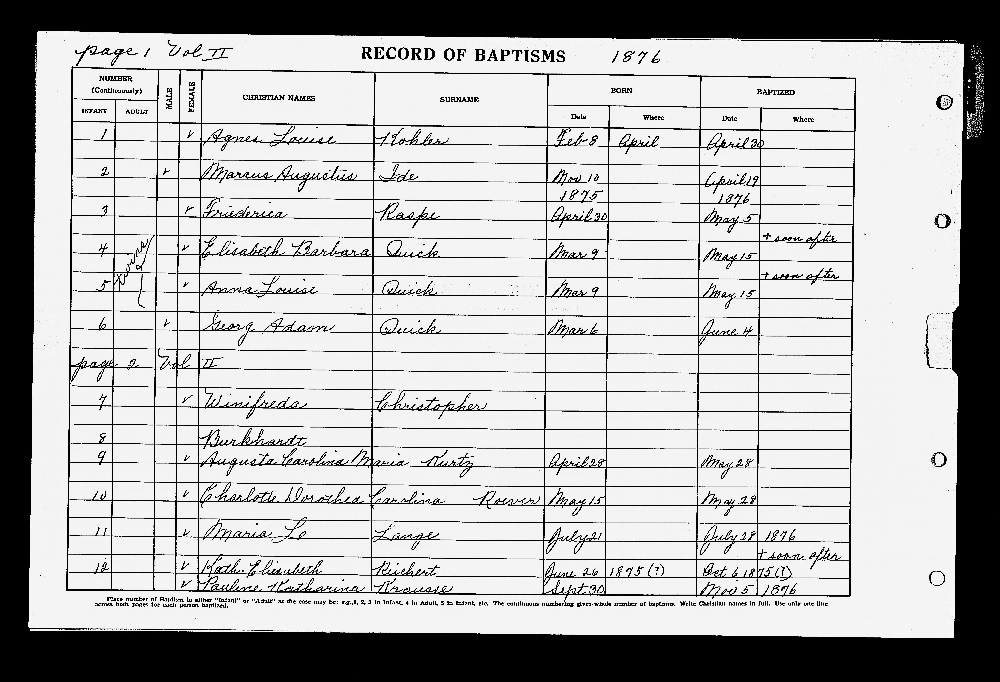 page 1 Vol II RECORD OF BAPTISMS 1876
NUMBER (Continuously) MALE FEMALE CHRISTIAN NAMES SURNAME BORN BAPTIZED
INFANT ADULT Date Where Date Where
1 v Agnes Louise Kohler Feb 8 April April 30
2 v Marcus Augustus Ide Nov 10 1875 April 19 1876
3 v Friederica Raspe April 30 May 5
+ soon after
4 v Elisabeth Barbara Quick Mar 9 May 15
twins
+ soon after
5 v Anna Louise Quick Mar 9 May 15
6 v Georg Adam Quick Mar 6 June 4
page 2 Vol II
7 v Winifreda Christopher
8 Burkhardt
9 v Augusta Carolina Maria Kurtz April 28 May 28
10 v Charlotte Dorothea Carolina Roever May 15 May 28
11 v Maria Le Lange July 21 July 28 1876
+ soon after
12 v Kath. Elisabeth Reichert June 26 1875 (?) Oct 6 1875 (?)
v Pauline Katharina Krausse Sept. 30 Nov 5 1876
Place number of Baptism in either "Infant" or "Adult" as the case may be: e.g., 1, 2, 3 in Infant, 4 in Adult, 5 in Infant, etc. The continuous numbering gives whole number of baptisms. Write Christian names in full. Use only one line
across both pages for each person baptized.